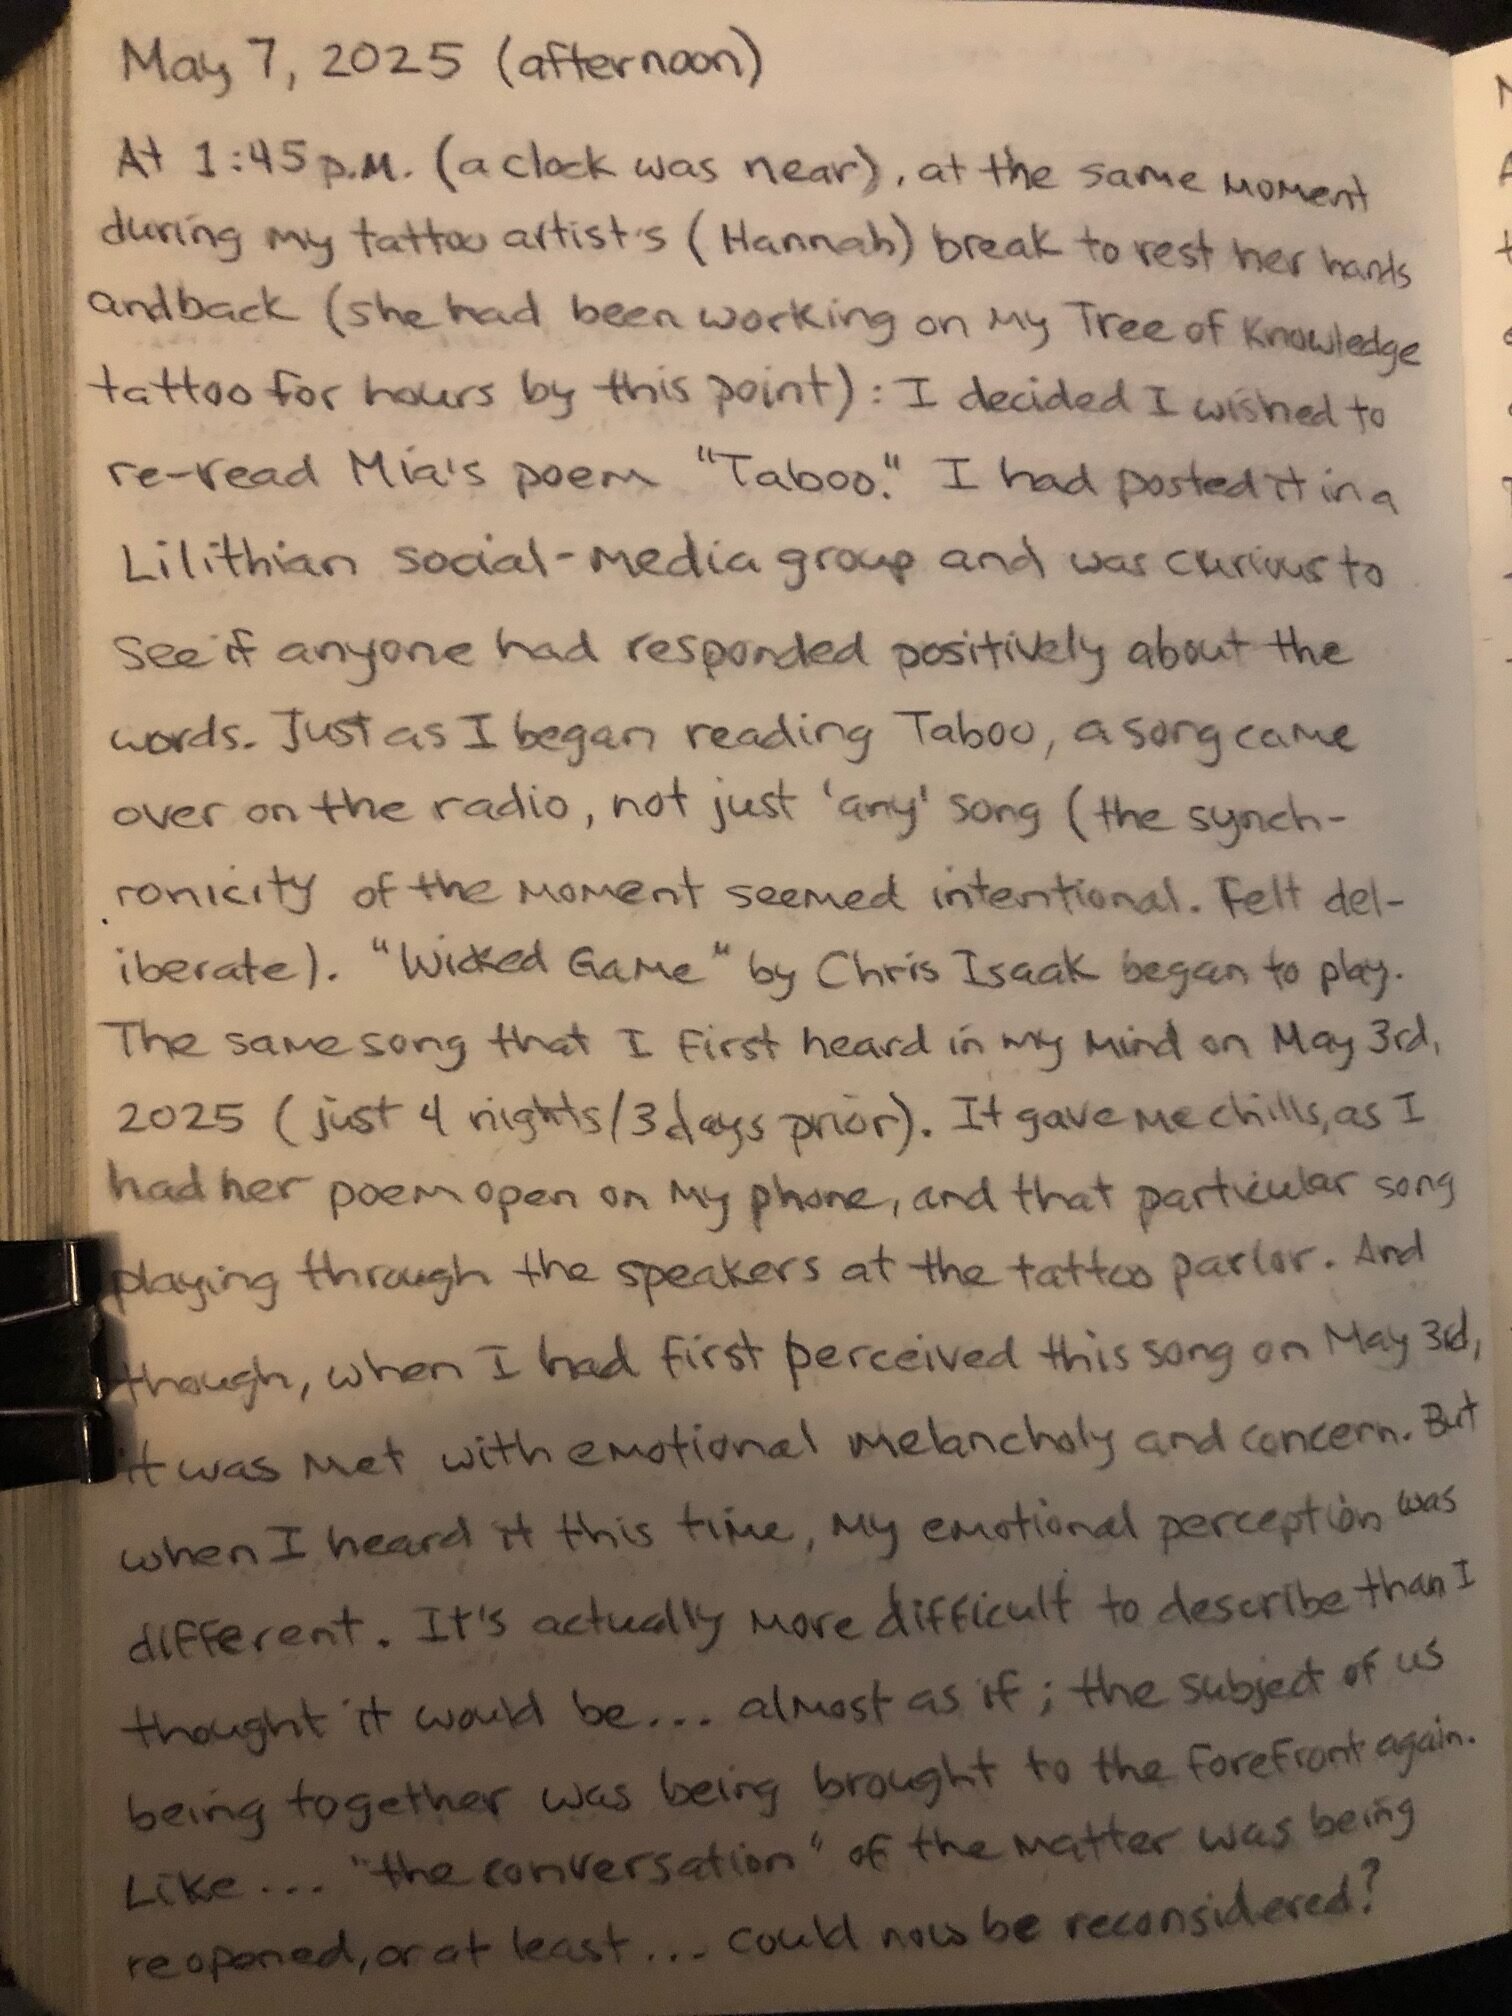 May 7, 2025 (afternoon)
At 1:45 p.m. (a clock was near), at the same moment
during my tattoo artist's (Hannah) break to rest her hands
and back (she had been working on my Tree of Knowledge
tattoo for hours by this point): I decided I wished to
re-read Mia's poem "Taboo." I had posted it in a
Lilithian social-media group and was curious to
see if anyone had responded positively about the
words. Just as I began reading Taboo, a song came
over on the radio, not just 'any' song (the synch-
ronicity of the moment seemed intentional. Felt del-
iberate). "Wicked Game" by Chris Isaak began to play.
The same song that I first heard in my mind on May 3rd,
2025 (just 4 nights/3 days prior). It gave me chills, as I
had her poem open on my phone, and that particular song
playing through the speakers at the tattoo parlor. And
though, when I had first perceived this song on May 3rd,
it was met with emotional melancholy and concern. But
when I heard it this time, my emotional perception was
different. It's actually more difficult to describe than I
thought it would be... almost as if; the subject of us
being together was being brought to the forefront again.
Like... "the conversation" of the matter was being
reopened, or at least... could now be reconsidered?